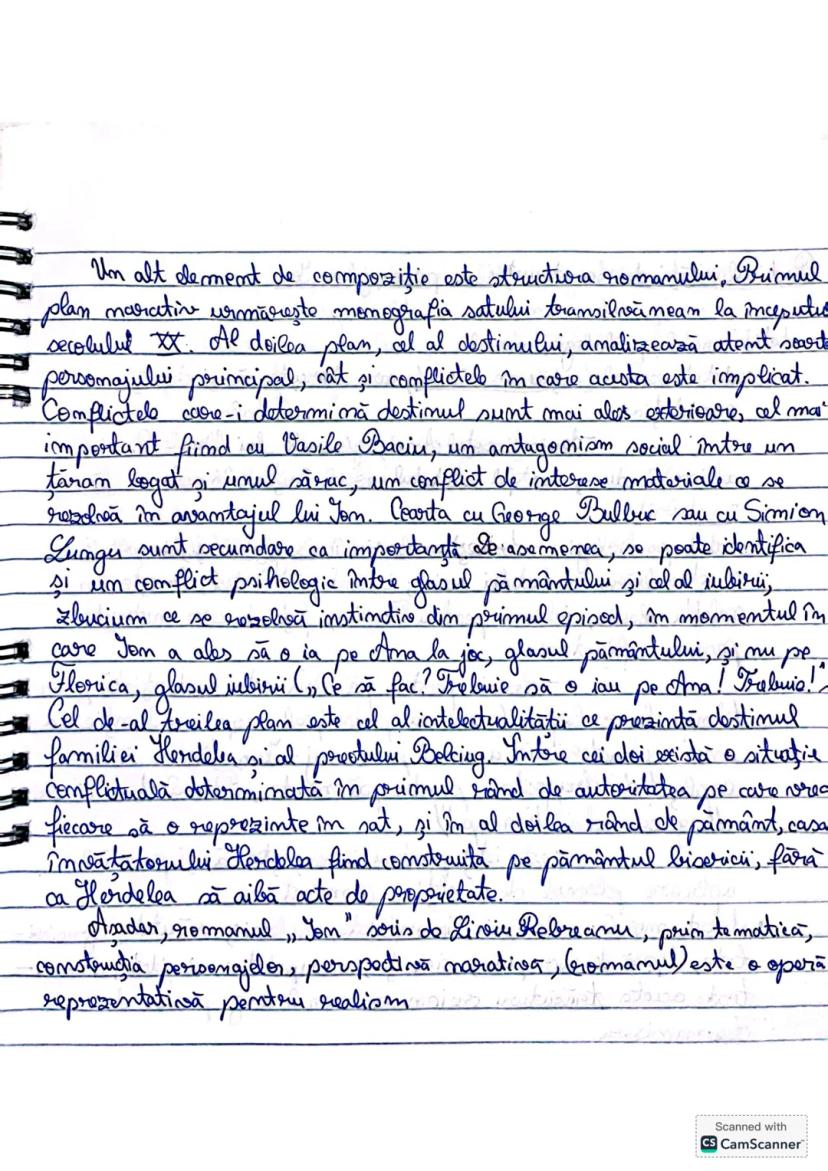 Un alt element de compoziție este structura romanului. Primul
plan narativ urmărește monografia satului transilvănean la începutu
secolului XX. Al doilea plan, cel al destinului, analizează atent soart
personajului principal, cât și conflictele în care acesta este implicat.
Conflictele care-i determină destinul sunt mai ales exterioare, cel mai
important fiind cu Vasile Baciu, un antagonism social între un
țăran bogat și unul sărac, un conflict de interese materiale ce se
rezolvă în avantajul lui Ion. Cearta cu George Bulbuc sau cu Simion
Lungu sunt secundare ca importanță. De asemenea, se poate identifica
și un conflict psihologic între glasul pământului și cel al iubirii,
zbucium ce se rezolvă instinctiv din primul episod, în momentul în
care Ion a ales să o ia pe Ana la joc, glasul pământului, și nu pe
Florica, glasul iubirii („Ce să fac? Trebuie să o iau pe Ana! Trebuie!"
Cel de-al treilea plan este cel al intelectualității ce prezintă destinul
familiei Herdelea și al preotului Belciug. Între cei doi există o situație
conflictuală determinată în primul rând de autoritatea pe care vrea
fiecare să o reprezinte în sat, și în al doilea rând de pământ, casa
învățătorului Herdelea fiind construită pe pământul bisericii, fără
ca Herdelea să aibă acte de proprietate.
Așadar, romanul „Ion" scris de Liviu Rebreanu, prin tematică,
construcția personajelor, perspectivă narativă, (romanul) este o operă
reprezentativă pentru realism
Scanned with
CS CamScanner